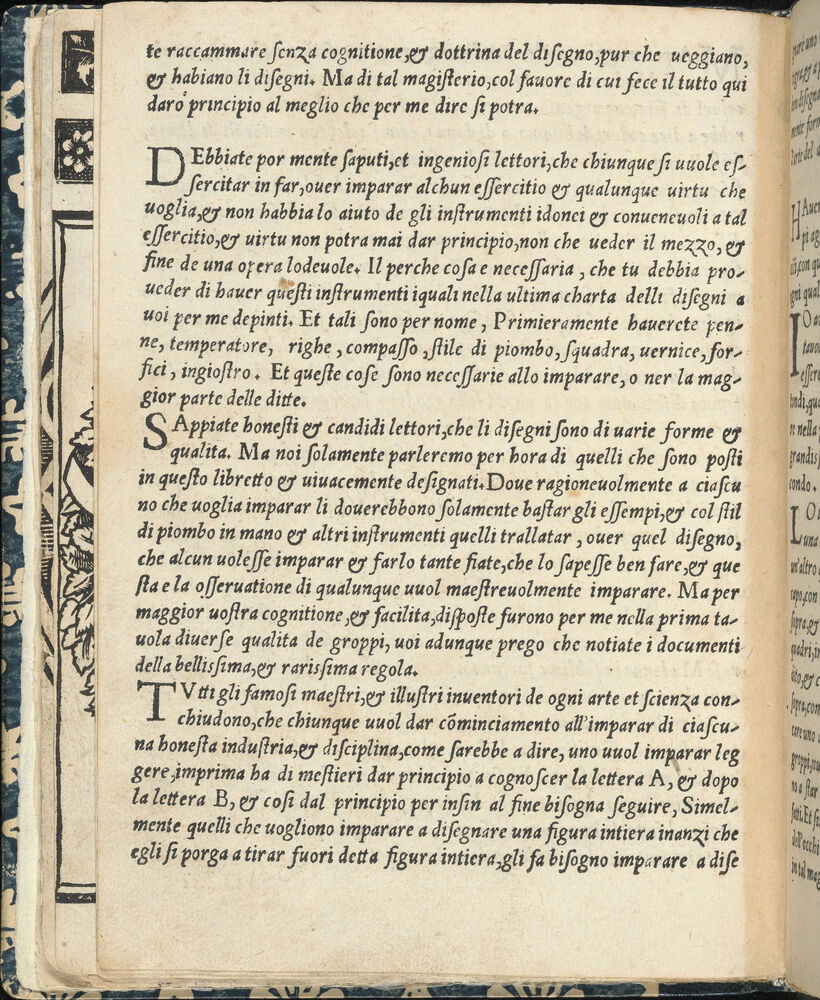 te raccammare ſenza cognitione,& dottrina del diſegno,pur che ueggiano,
& habiano li diſegni. Ma di tal magiſterio,col fauore di cui fece il tutto qui
daro principio al meglio che per me dire ſi potra.
DEbbiate por mente ſaputi,et ingenioſi lettori,che chiunque ſi uuole eſ-
ſercitar in far,ouer imparar alchun eſſercitio & qualunque uirtu che
uoglia,& non habbia lo aiuto de gli inſtrumenti idonei & conueneuoli a tal
eſſercitio,& uirtu non potra mai dar principio,non che ueder il mezzo, &
fine de una opera lodeuole. Il perche coſa e neceſſaria , che tu debbia pro-
ueder di hauer queſti inſtrumenti iquali nella ultima charta delli diſegni a
uoi per me depinti. Et tali ſono per nome , Primieramente hauerete pen-
ne, temperatore, righe , compaſſo ,ſtile di piombo, ſquadra, uernice, for-
fici , ingioſtro . Et queſte coſe ſono neceſſarie allo imparare, o ner la mag-
gior parte delle ditte.
SAppiate honeſti & candidi lettori,che li diſegni ſono di uarie forme &
qualita. Ma noi ſolamente parleremo per hora di quelli che ſono poſti
in queſto libretto & uiuacemente deſignati.Doue ragioneuolmente a ciaſcu
no che uoglia imparar li douerebbono ſolamente baſtar gli eſſempi,& col ſtil
di piombo in mano & altri inſtrumenti quelli trallatar , ouer quel diſegno,
che alcun uoleſſe imparar & farlo tante fiate,che lo ſapeſſe ben fare,& que
ſta e la oſſeruatione di qualunque uuol maeſtreuolmente imparare. Ma per
maggior uoſtra cognitione,& facilita,diſpoſte furono per me nella prima ta-
uola diuerſe qualita de groppi, uoi adunque prego che notiate i documenti
della belliſsima,& rariſsima regola.
TVtti gli famoſi maeſtri,& illuſtri inuentori de ogni arte et ſcienza con-
chiudono,che chiunque uuol dar cõminciamento all'imparar di ciaſcu-
na honeſta induſtria,& diſciplina,come ſarebbe a dire, uno uuol imparar leg
gere,imprima ha di meſtieri dar principio a cognoſcer la lettera A, & dopo
la lettera B, & coſi dal principio per inſin al fine biſogna ſeguire, Simel-
mente quelli che uogliono imparare a diſegnare una figura intiera inanzi che
egli ſi porga a tirar fuori detta figura intiera,gli fa biſogno imparare a diſe